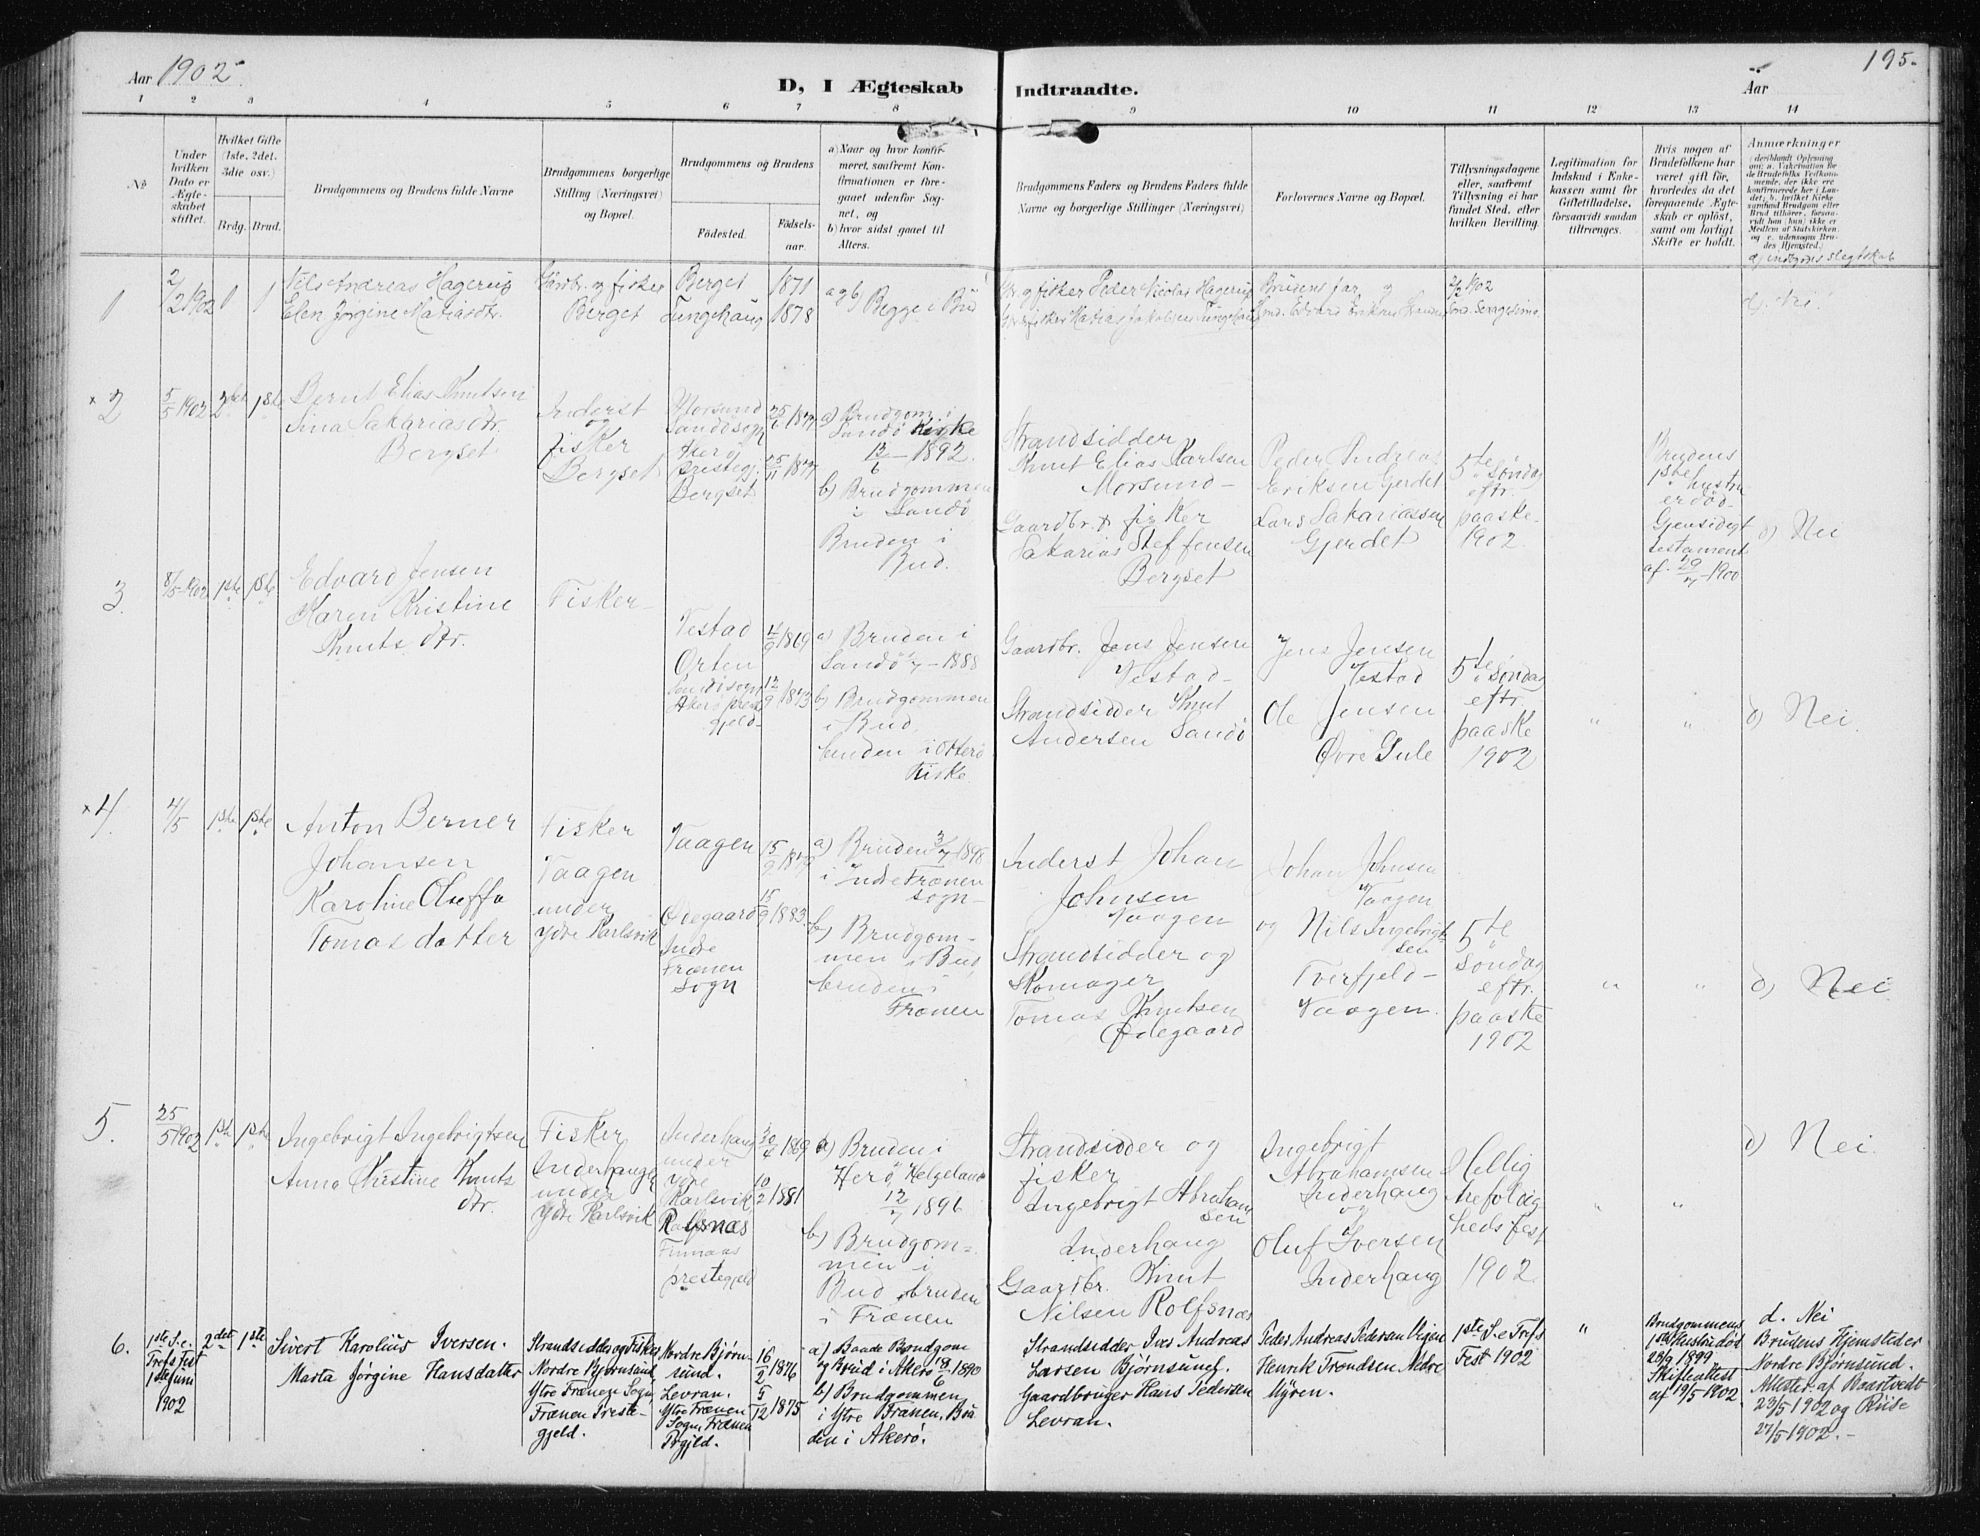 Aar 1902
195.
D, I Ægteskab Indtraadte.
Aar
1 2 3 4 5 6 7 8 9 10 11 12 13 14
No
Under hvilken Dato er Ægteskabet stiftet.
Hvilket Gifte (1ste, 2det, 3die osv.)
Brdg. Brud.
Brudgommens og Brudens fulde Navne
Brudgommens borgerlige Stilling (Næringsvei) og Bopæl.
Brudgommens og Brudens
Fødested.
Fødselsaar.
a) Naar og hvor konfirmeret, saafremt Konfirmationen er foregaaet udenfor Sognet, og
b) hvor sidst gaaet til Alters.
Brudgommens Faders og Brudens Faders fulde Navne og borgerlige Stillinger (Næringsvei)
Forlovernes Navne og Bopæl.
Tillysningsdagene eller, saafremt Tillysning ei har fundet Sted, efter hvilken Bevilling.
Legitimation for Indskud i Enkekassen samt for Giftetilladelse, forsaavidt saadan tiltrænges.
Hvis nogen af Brudefolkene har været gift før, hvorledes da det foregaaende Ægteskab er opløst, samt om lovligt Skifte er holdt.
Anmærkninger
1
2/2 1902
1
1
Nils Andreas Hagerup
Elen Jørgine Matiasdtr.
Gårdbr. og fisker
Berget
Berget
Tunghaug
1871
1878
a og b Begge i Bud
Gbr. og fisker Peder Nicolai Hagerup
Brudens far og
2/2 1902
Sønd. Sexagesima
d). Nei!
× 2
5/5 1902
2det
1ste
Bernt Elias Knutsen
Sina Sakariasdtr.
Bergset
Inderst
og
fisker
Bergset
Morsund
Sandøsogn
Akerø
prestegj.
Bergset
a) Brudgom i
Sandø Kirke
13/6 1892.
b) Brudgommen
i Sandø
Bruden i
Bud.
Strandsidder
Knut Elias Karlsen
Morsund
Gaardbr. & fisker
Sakarias Steffensen
Bergset
Peder Andreas
Eriksen Gjerdet
Lars Sakariassen
Gjerdet
5te Søndag
eftr.
paaske
1902
Brudgens
1ste hustru
er død
Gjensidigt
testament
af 29/7 1900
d) Nei
3.
8/5 1902
1ste
1ste
Edvard Jensen
Karen Kristine
Knuts dtr.
Fisker
Vestad
Orten
Sandøsogn
Akerø prest
gjeld
4/9 1869
12/9 1873
a) Bruden i
Sandø 1/7 1888
b) Brudgommen
i Bud,
bruden i Akerø
Kirke.
Gaardbr. Jens Jensen
Vestad
Strandsidder Knut
Andersen Sandø
Jens Jensen
Vestad
Ole Jensen
Øvre Gule
5te Søndag
eftr.
paaske
1902
"
"
d) Nei.
× 4.
4/5
1ste
1ste
Anton Berner
Johansen
Karoline Oluffa
Tomasdatter
Fisker
Vaagen
under
Ydre Karlsvik
Vaagen
Ødegaard
Indre
Frænen
Sogn
15/9 1883
a) Bruden 3/7 1898
i Indre Frænen
sogn
b) Brudgom-
men i Bud
bruden i
Frænen
Inderst Johan
Johnsen
Vaagen
Strandsidder og
Skomager
Tomas Knutsen
Ødegaard
Johan Johnsen
Vaagen
og Nils Ingebrigt-
sen
Tverfjeld
Vaagen.
5te
Søndag
eftr.
paaske
1902
"
"
d) Nei
5.
25/5 1902
1ste
1ste
Ingebrigt Ingebrigtsen
Anna Kristine Knuts
dtr.
Fisker
Inderhaugen
under
Ydre Karlsvik
Inderhaug
under
ydre
Karlsvik
Rolfsnæs
Finnaas
prestegjeld
30/4 1869
10/2 1881
a) Bruden i
Herø, Helgeland
12/7 1896
b) Brudgom-
men i
Bud, bruden
i Frænen
Strandsidder og
fisker
Ingebrigt Abraham
sen
Inderhaug
Gaardbr. Knut
Nilsen Rolfsnæs
Ingebrigt
Abrahamsen
Inderhaug
og
Oluf Iversen
Inderhaug
Hellig
Trefoldig
hedsfest
1902
"
"
d) Nei.
6.
1ste S. e.
Trefs Fest
1ste Juni
1902
2det
1ste
Sivert Karolius Iversen.
Marta Jørgine Hansdatter
Strandsidder og Fisker
Nordre Bjørnsund
Ytre Frænen Sogn,
Frænen Preste-
gjeld.
Nordre Bjørn-
sund.
Levran.
Ytre Frænen
Sogn, Frænen
Pgjld.
16/2 1876
5/12 1875
a) Baade Brudgom
og Brud i Akerø 18/6 1890
b) Brudgommen
i Ytre Frænen, Bru
den i Akerø.
Strandsidder Ivar Andreas
Larsen Bjørnsund.
Gaardbruger Hans Pedersen
Levran.
Peder Andreas Pedersen Vigen
Henrik Trondsen Nedre
Myren.
1ste S. e Trefs
Fest 1902
"
Brudgommens
1ste Hustru død
23/9 1899
Skifteattest
af 19/5 1902.
d. Nei
Brudens Hjemsted er
Nordre Bjørnsund.
Attester af Baartvedt
23/5 1902 og Riise
27/5 1902.